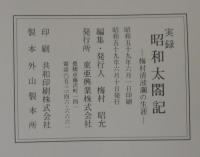 実録
昭和太閤記
―梅村清治郎の生涯―
昭和五十九年六月一日印刷
昭和五十九年六月十日発行
編集・発行人 梅村 昭允
発行所 東亜興業株式会社
印刷 共和印刷株式会社
製本 外山製本所